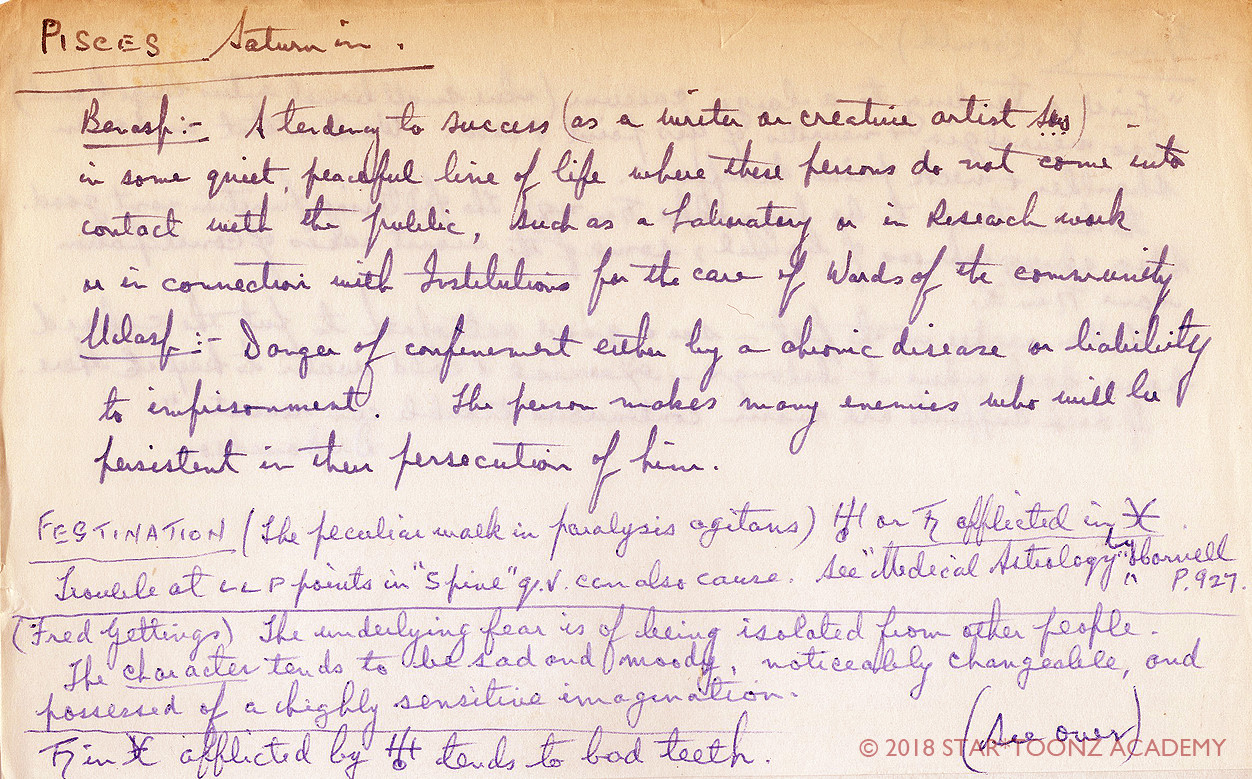 PISCES Saturn in .
Benasp:- A tendency to success (as a writer or creative artist ) -
in some quiet, peaceful line of life where these persons do not come into
contact with the public, such as a Laboratory or in Research work
or in connection with Institutions for the care of Wards of the community
Uclasp:- Danger of confinement either by a chronic disease or liability
to imprisonment. The person makes many enemies who will be
persistent in their persecution of him.
FESTINATION (The peculiar walk in paralysis agitans) ♅ or ♄ afflicted in ♓ .
Trouble at LLP points in "Spine" q.v. can also cause. See "Medical Astrology" by P.927.
(Fred Gettings) The underlying fear is of being isolated from other people.
The character tends to be sad and moody, noticeably changeable, and
possessed of a highly sensitive imagination.
(See over)
♄ in ♓ afflicted by ♅ tends to bad teeth.
© 2018 STAR-TOONZ ACADEMY